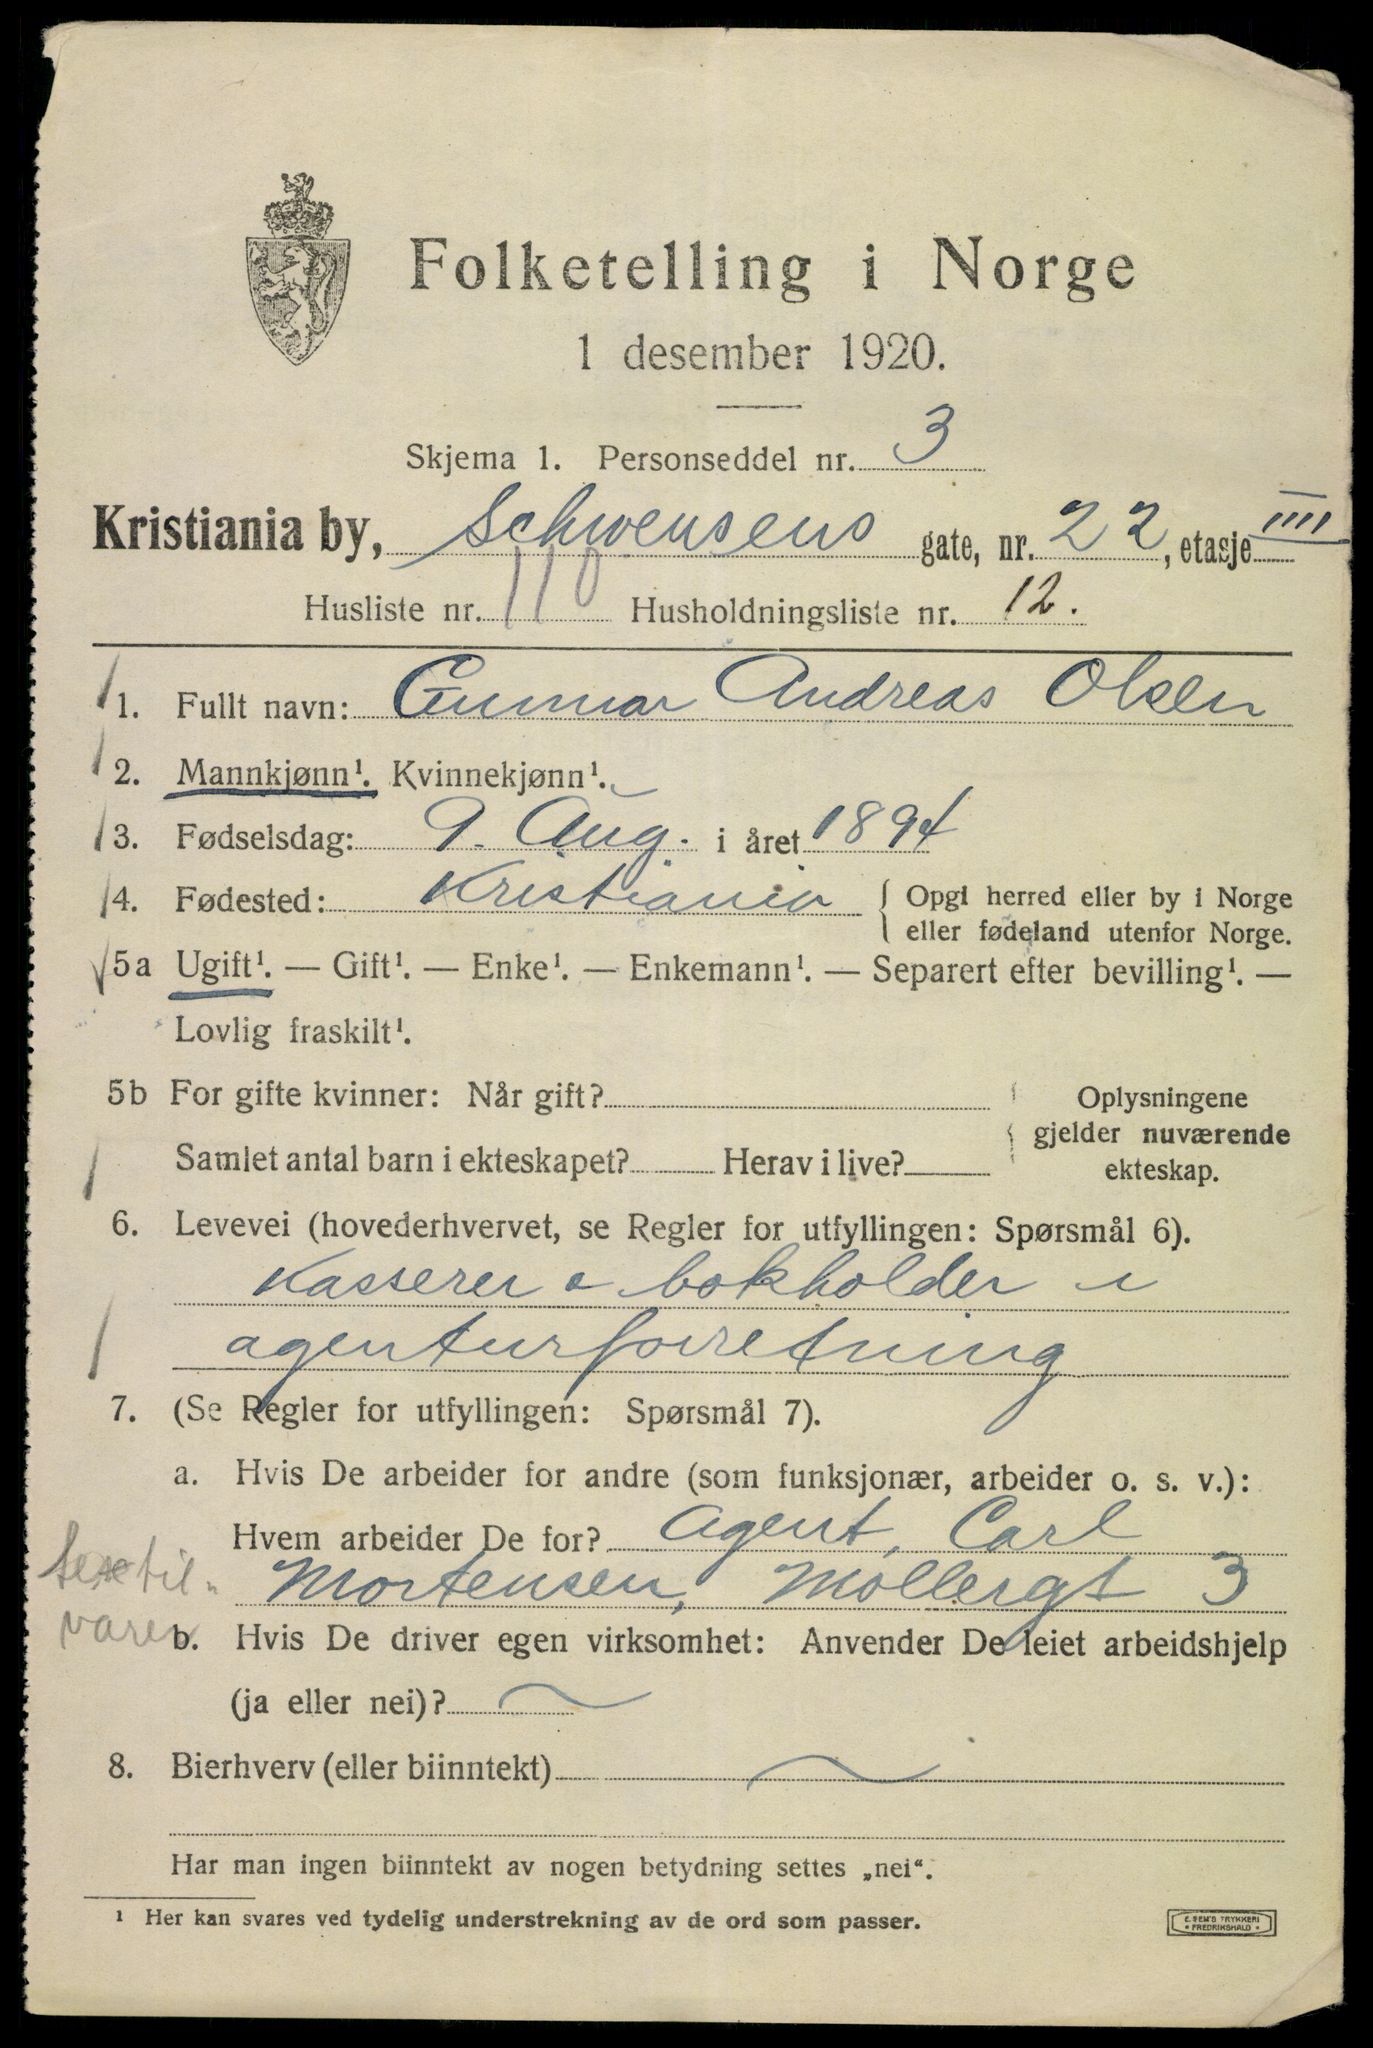 Folketelling i Norge
1 desember 1920.
Skjema 1. Personseddel nr. 3
Kristiania by, Schwensens gate, nr. 22, etasje IIII
Husliste nr. 110 Husholdningsliste nr. 12.
1. Fullt navn: Gunnar Andreas Olsen
2. Mannkjønn¹. Kvinnekjønn¹.
3. Fødselsdag: 9. Aug. i året 1894
4. Fødested: Kristiania { Opgi herred eller by i Norge
eller fødeland utenfor Norge.
5a Ugift¹. — Gift¹. — Enke¹. — Enkemann¹. — Separert efter bevilling¹. —
Lovlig fraskilt¹.
5b For gifte kvinner: Når gift? Oplysningene
gjelder nuværende
Samlet antal barn i ekteskapet? Herav i live? ekteskap.
6. Levevei (hovederhvervet, se Regler for utfyllingen: Spørsmål 6).
Kasserer o bokholder i
agenturforretning
7. (Se Regler for utfyllingen: Spørsmål 7).
a. Hvis De arbeider for andre (som funksjonær, arbeider o. s. v.):
Hvem arbeider De for? Agent, Carl
textil- Mortensen, Møllergt 3
varer
b. Hvis De driver egen virksomhet: Anvender De leiet arbeidshjelp
(ja eller nei)? ~
8. Bierhverv (eller biinntekt) ~
Har man ingen biinntekt av nogen betydning settes „nei“.
¹ Her kan svares ved tydelig understrekning av de ord som passer.
E. SEM'S TRYKKERI
* FREDRIKSHALD *